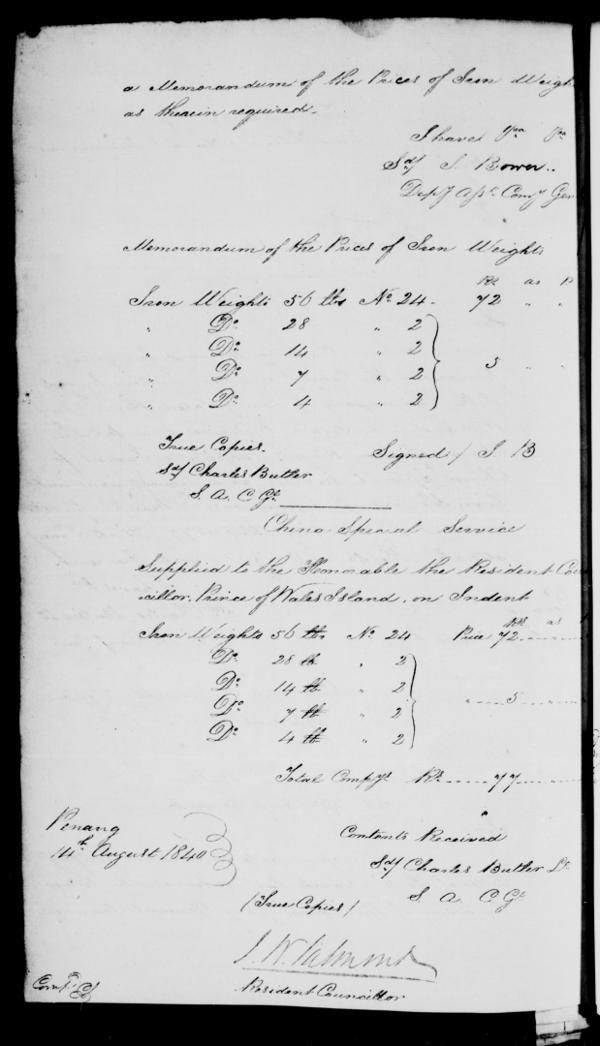 a Memorandum of the Prices of Iron Weigh
as therein required.
I have &ca &ca
Sd/ S. Bower..
Depy Asst. Comy Gen
Memorandum of the Prices of Iron Weights
Rs. as P
Iron Weights 56 lbs No. 24. 72 " "
" Do. 28 " 2
" Do. 14 " 2
" Do. 7 " 2 5 " "
" Do. 4 " 2
True Copies. Signed/ S. B
Sd/ Charles Butler
S. A. C. Gl.
China Special Service
Supplied to the Honorable the Resident Coun
cillor. Prince of Wales Island. on Indent
Rs as
Iron Weights 56 lb. No. 24 Price 72
Do. 28 lb " 2
Do. 14 lb " 2
Do. 7 lb " 2 " 5
Do. 4 lb " 2
Total Compys. Rs. 77
Penang
14th. August 1840
Contents Received
Sd/ Charles Butler Lt.
S. A. C. Gl.
/True Copies/
Resident Councillor